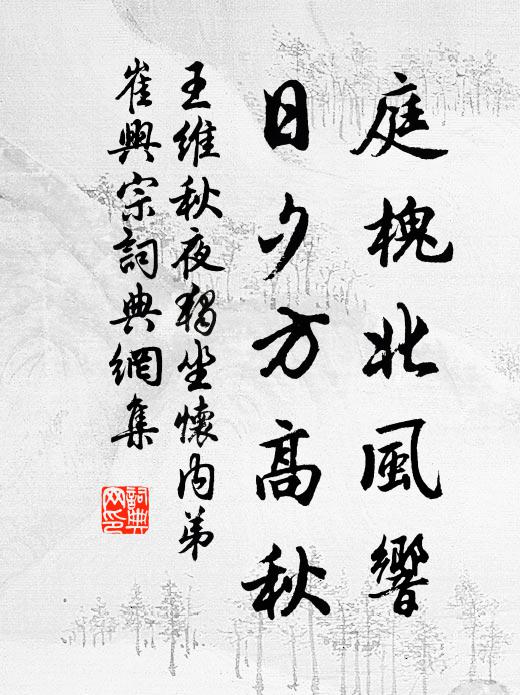 庭槐北風響
日夕方高秋
王維秋夜獨坐懷內弟
崔興宗詞典網集
詞典
网印